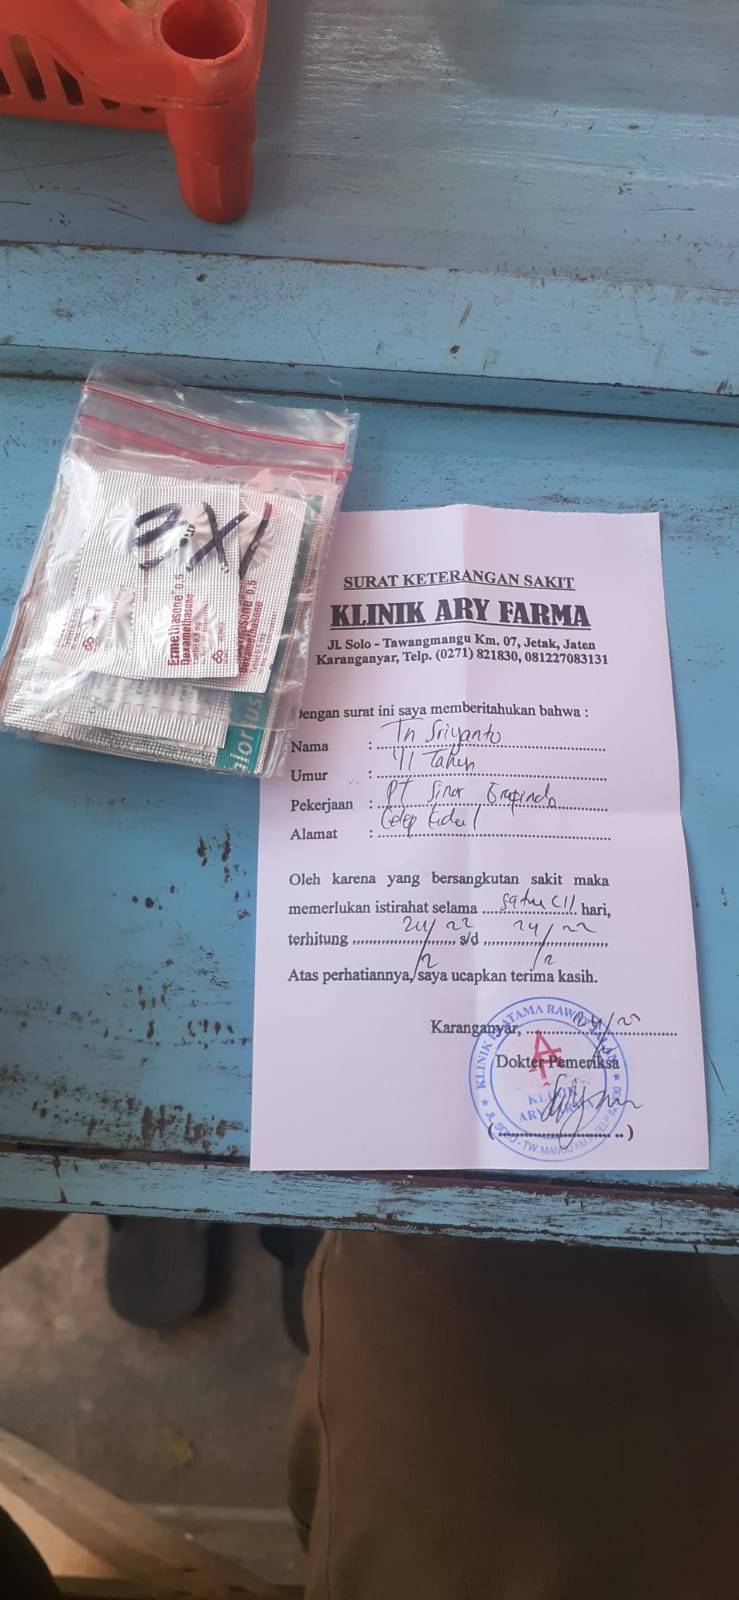 3x1
Ermethasone 0,5
Dexamethasone
SURAT KETERANGAN SAKIT
KLINIK ARY FARMA
Jl. Solo - Tawangmangu Km. 07, Jetak, Jaten
Karanganyar, Telp. (0271) 821830, 081227083131
Dengan surat ini saya memberitahukan bahwa :
Nama : Tn Sriyanto
Umur : 41 Tahun
Pekerjaan : PT Sinar
Alamat : Celep Kidul
Oleh karena yang bersangkutan sakit maka
memerlukan istirahat selama satu (1) hari,
terhitung 24/2 22 s/d 24/2 22
Atas perhatiannya, saya ucapkan terima kasih.
Karanganyar, 24/2 22
Dokter Pemeriksa
KLINIK PRATAMA RAWAT JALAN
KLINIK
ARY FARMA